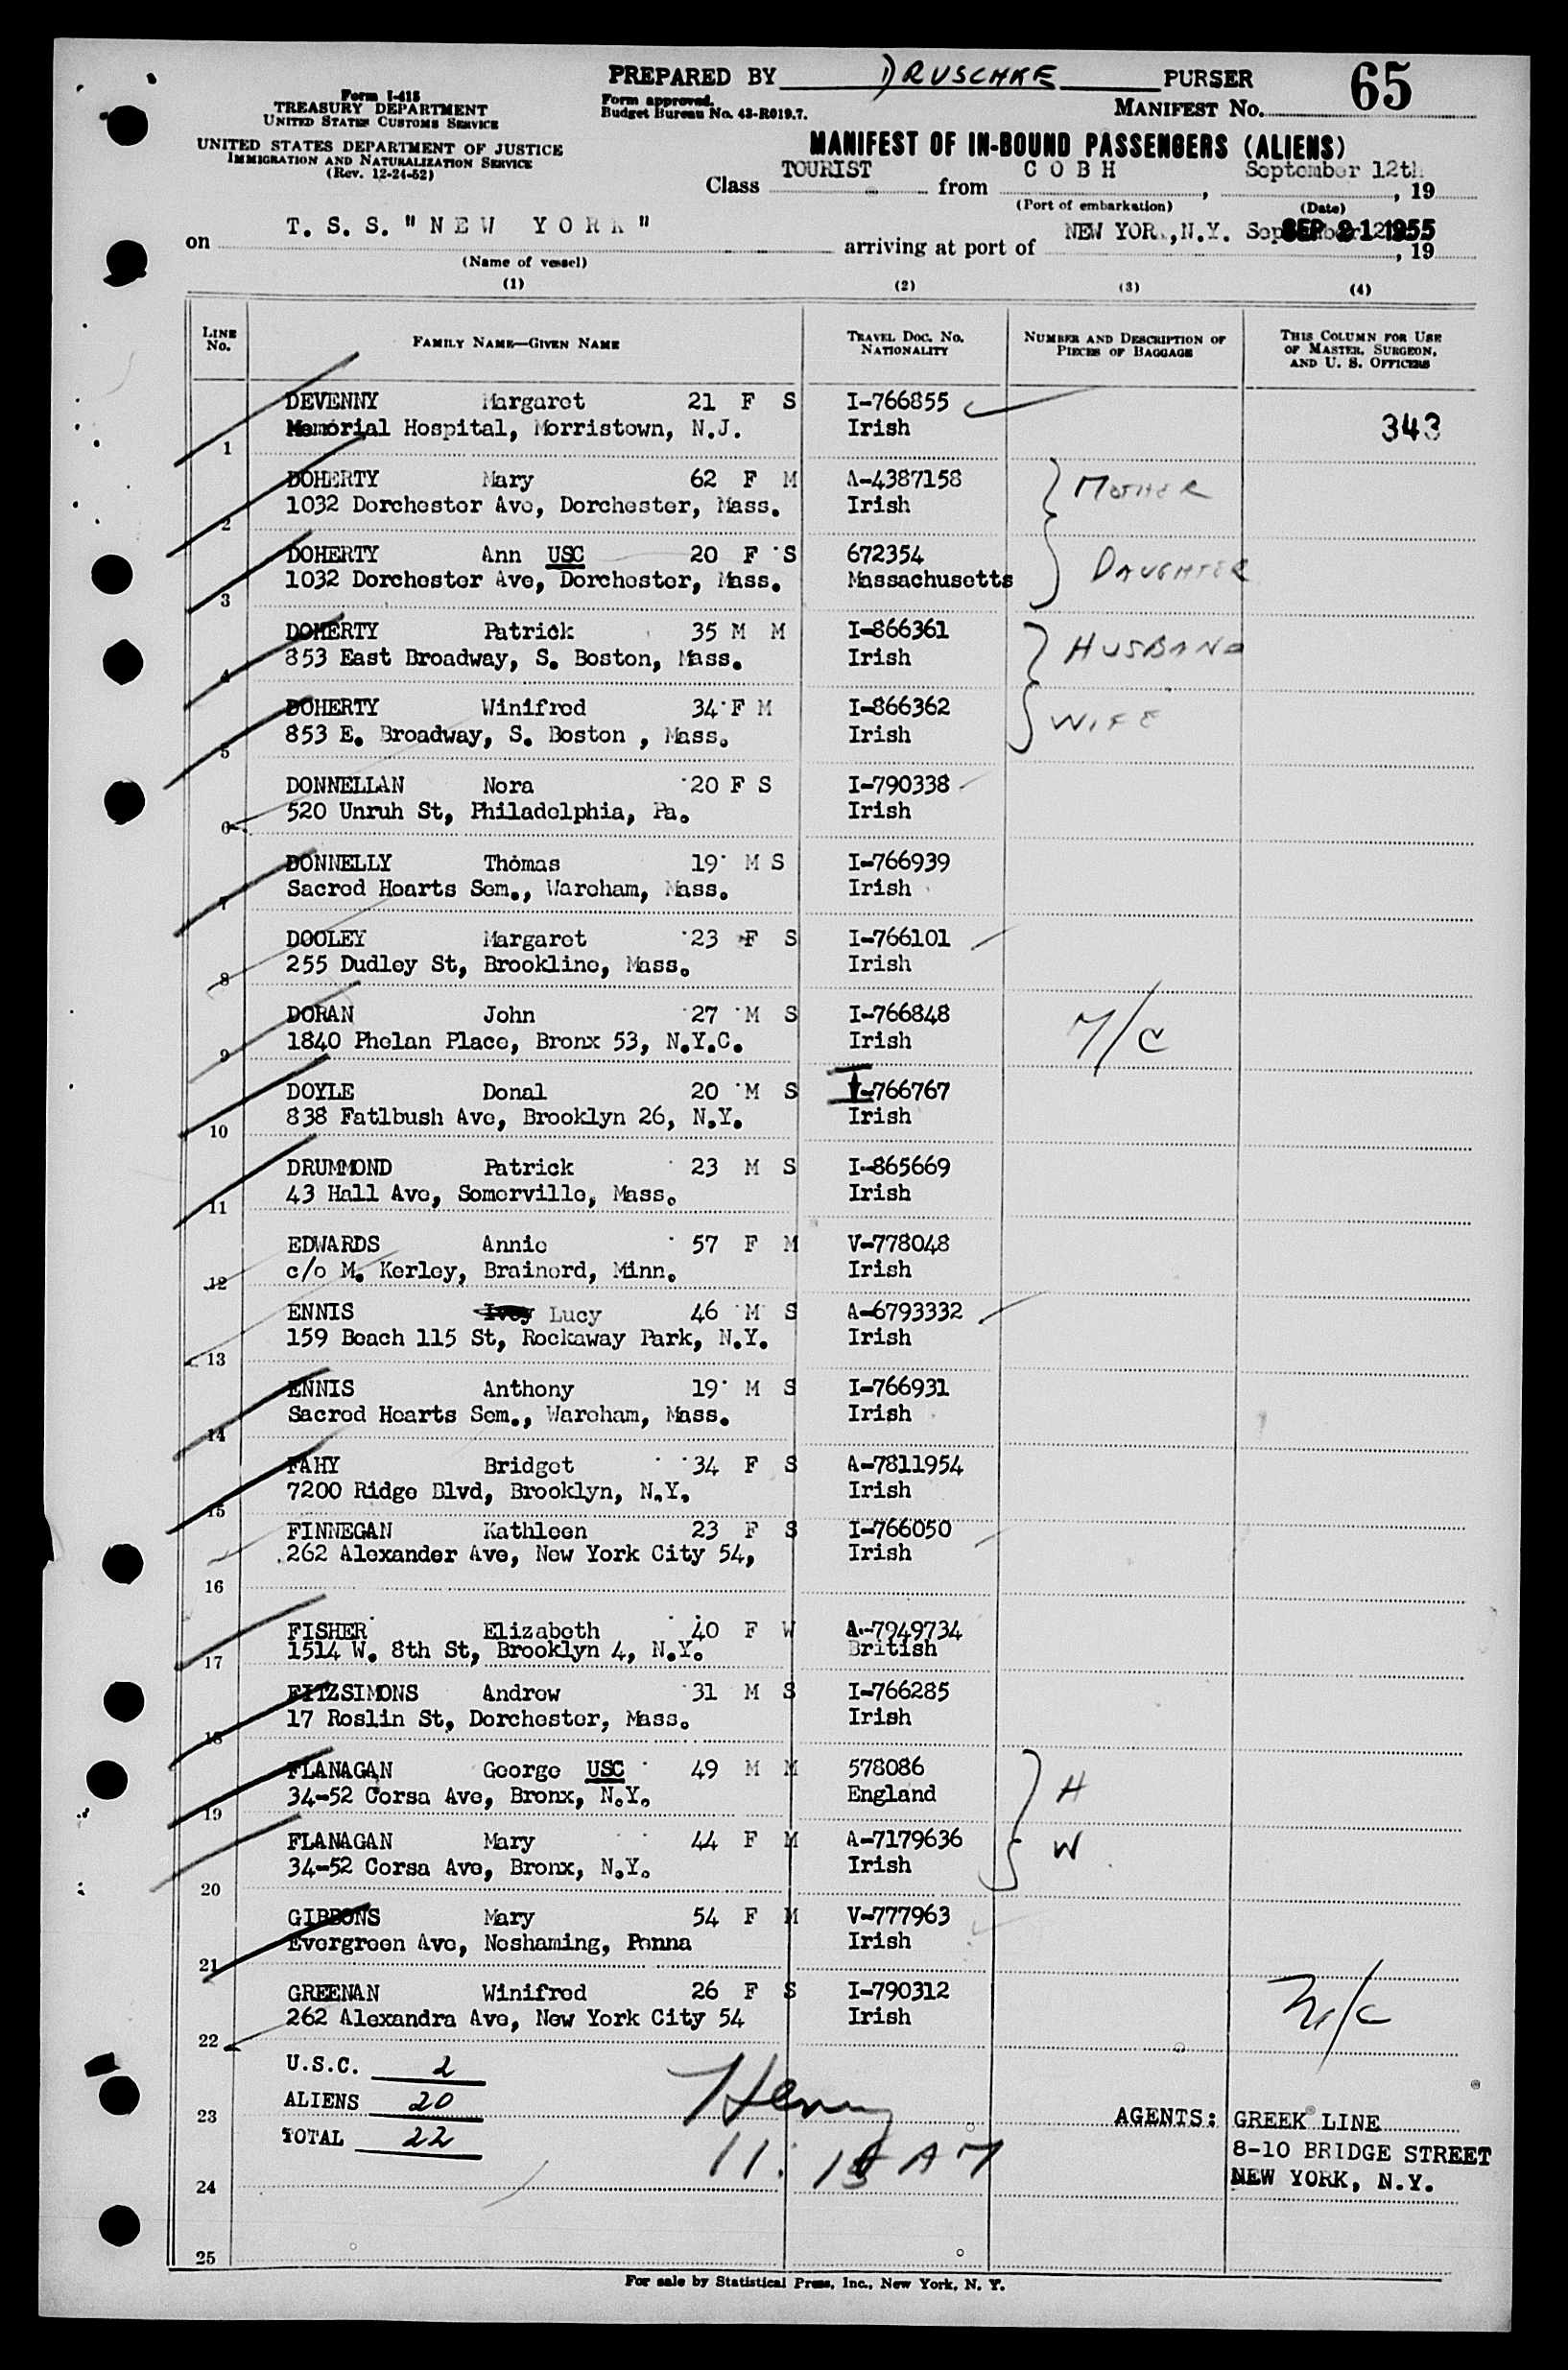 PREPARED BY DRUSCHKE PURSER 65
Form I-415
TREASURY DEPARTMENT
UNITED STATES CUSTOMS SERVICE
Form approved.
Budget Bureau No. 43-R019.7.
MANIFEST No.
UNITED STATES DEPARTMENT OF JUSTICE
IMMIGRATION AND NATURALIZATION SERVICE
(Rev. 12-24-52)
MANIFEST OF IN-BOUND PASSENGERS (ALIENS)
Class TOURIST from C O B H, September 12th, 19
(Port of embarkation) (Date)
on T. S. S. "N E W Y O R K" arriving at port of NEW YORK, N.Y. SEP 21 1955, 19
(Name of vessel)
(1) (2) (3) (4)
LINE No. FAMILY NAME—GIVEN NAME TRAVEL DOC. No. NATIONALITY NUMBER AND DESCRIPTION OF PIECES OF BAGGAGE THIS COLUMN FOR USE OF MASTER, SURGEON, AND U. S. OFFICERS
DEVENNY Margaret 21 F S I-766855
1 Memorial Hospital, Morristown, N.J. Irish 343
DOHERTY Mary 62 F M A-4387158 MOTHER
2 1032 Dorchester Ave, Dorchester, Mass. Irish
DOHERTY Ann USC 20 F S 672354 DAUGHTER
3 1032 Dorchester Ave, Dorchester, Mass. Massachusetts
DOHERTY Patrick 35 M M I-866361 HUSBAND
4 853 East Broadway, S. Boston, Mass. Irish
DOHERTY Winifred 34 F M I-866362 WIFE
5 853 E. Broadway, S. Boston , Mass. Irish
DONNELLAN Nora 20 F S I-790338
6 520 Unruh St, Philadelphia, Pa. Irish
DONNELLY Thomas 19 M S I-766939
7 Sacred Hearts Sem., Wareham, Mass. Irish
DOOLEY Margaret 23 F S I-766101
8 255 Dudley St, Brookline, Mass. Irish
DORAN John 27 M S I-766848
9 1840 Phelan Place, Bronx 53, N.Y.C. Irish
DOYLE Donal 20 M S I-766767
10 838 Fatlbush Ave, Brooklyn 26, N.Y. Irish
DRUMMOND Patrick 23 M S I-865669
11 43 Hall Ave, Somerville, Mass. Irish
EDWARDS Annie 57 F M V-778048
12 c/o M. Kerley, Brainerd, Minn. Irish
ENNIS Lucy 46 M S A-6793332
13 159 Beach 115 St, Rockaway Park, N.Y. Irish
ENNIS Anthony 19 M S I-766931
14 Sacred Hearts Sem., Wareham, Mass. Irish
FAHY Bridget 34 F S A-7811954
15 7200 Ridge Blvd, Brooklyn, N.Y. Irish
FINNEGAN Kathleen 23 F S I-766050
262 Alexander Ave, New York City 54, Irish
16
FISHER Elizabeth 40 F W A-7949734
17 1514 W. 8th St, Brooklyn 4, N.Y. British
FITZSIMONS Andrew 31 M S I-766285
18 17 Roslin St, Dorchester, Mass. Irish
FLANAGAN George USC 49 M M 578086 H
19 34-52 Corsa Ave, Bronx, N.Y. England
FLANAGAN Mary 44 F M A-7179636 W
20 34-52 Corsa Ave, Bronx, N.Y. Irish
GIBBONS Mary 54 F M V-777963
21 Evergreen Ave, Neshaming, Penna Irish
GREENAN Winifred 26 F S I-790312
22 262 Alexandra Ave, New York City 54 Irish
U.S.C. 2
23 ALIENS 20 Henry AGENTS: GREEK LINE
TOTAL 22 11:15 AM 8-10 BRIDGE STREET
24 NEW YORK, N.Y.
25
For sale by Statistical Press, Inc., New York, N. Y.